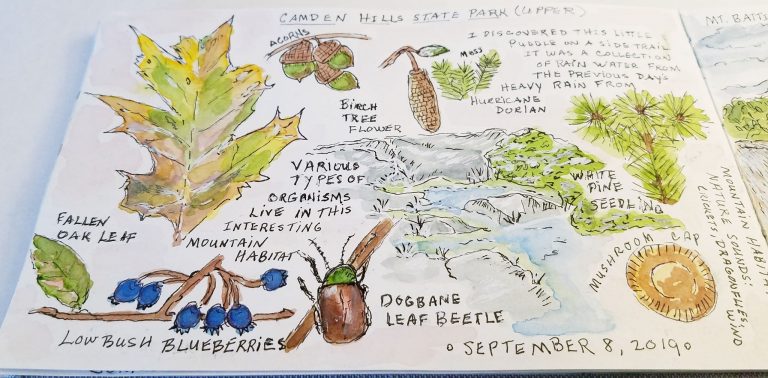 CAMDEN HILLS STATE PARK (UPPER)
ACORNS
BIRCH
TREE
FLOWER
MOSS
I DISCOVERED THIS LITTLE
PUDDLE ON A SIDE TRAIL
IT WAS A COLLECTION
OF RAIN WATER FROM
THE PREVIOUS DAY'S
HEAVY RAIN FROM
HURRICANE
DORIAN
VARIOUS
TYPES OF
ORGANISMS
LIVE IN THIS
INTERESTING
MOUNTAIN
HABITAT
WHITE
PINE
SEEDLING
FALLEN
OAK LEAF
MUSHROOM CAP
LOWBUSH BLUEBERRIES
DOGBANE
LEAF BEETLE
SEPTEMBER 8, 2019
MT. BATTI
MOUNTAIN HABITAT
NATURE SOUNDS:
CRICKETS, DRAGONFLIES,
WIND